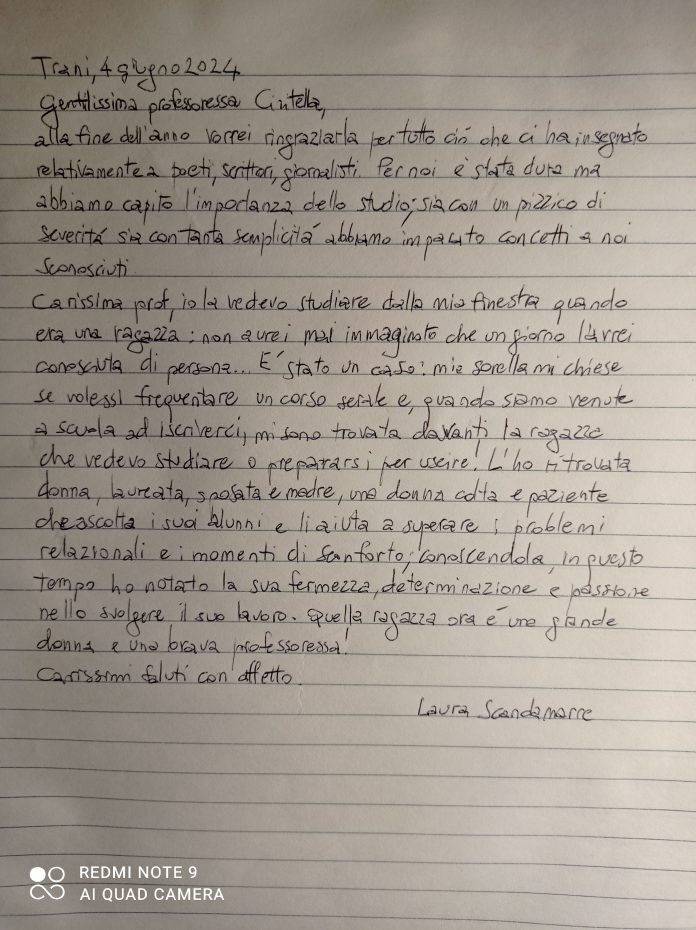 Trani, 4 giugno 2024
Gentilissima professoressa Cintella,
alla fine dell'anno vorrei ringraziarla per tutto ciò che ci ha insegnato
relativamente a poeti, scrittori, giornalisti. Per noi è stata dura ma
abbiamo capito l'importanza dello studio; sia con un pizzico di
severità sia con tanta semplicità abbiamo imparato concetti a noi
sconosciuti.
Carissima prof, io la vedevo studiare dalla mia finestra quando
era una ragazza; non avrei mai immaginato che un giorno l'avrei
conosciuta di persona... E' stato un caso: mia sorella mi chiese
se volessi frequentare un corso serale e, quando siamo venute
a scuola ad iscriverci, mi sono trovata davanti la ragazza
che vedevo studiare o prepararsi per uscire! L'ho ritrovata
donna, laureata, sposata e madre, una donna colta e paziente
che ascolta i suoi alunni e li aiuta a superare i problemi
relazionali e i momenti di sconforto; conoscendola, in questo
tempo ho notato la sua fermezza, determinazione e passione
nello svolgere il suo lavoro. Quella ragazza ora è una grande
donna e una brava professoressa!
Carissimi saluti con affetto.
Laura Scandamarre
REDMI NOTE 9
AI QUAD CAMERA